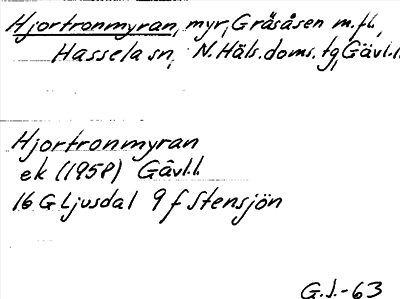 Hjortronmyran, myr, Gråsåsen m.fl.,
Hassela sn, N. Häls. doms. tg, Gävl.l.
Hjortronmyran
ek (1958) Gävl.l.
16 G Ljusdal 9 f Stensjön
G.J.-63